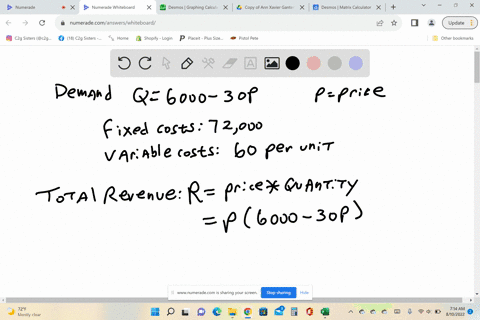 Numerade
Numerade Whiteboard
Desmos | Graphing Calcul
Copy of Ann Xavier Gante
Desmos | Matrix Calculator
numerade.com/answers/whiteboard/
Update
C2g Sisters (@c2g...
(18) C2g Sisters -...
Home
Shopify - Login
Placeit - Plus Size...
Pistol Pete
Other bookmarks
Demand Q=6000-30P P=price
Fixed costs: 72,000
Variable costs: 60 per unit
Total Revenue: R = price * Quantity
= P(6000-30P)
www.numerade.com is sharing your screen.
Stop sharing
Hide
72°F
Mostly clear
7:14 AM
8/10/2022